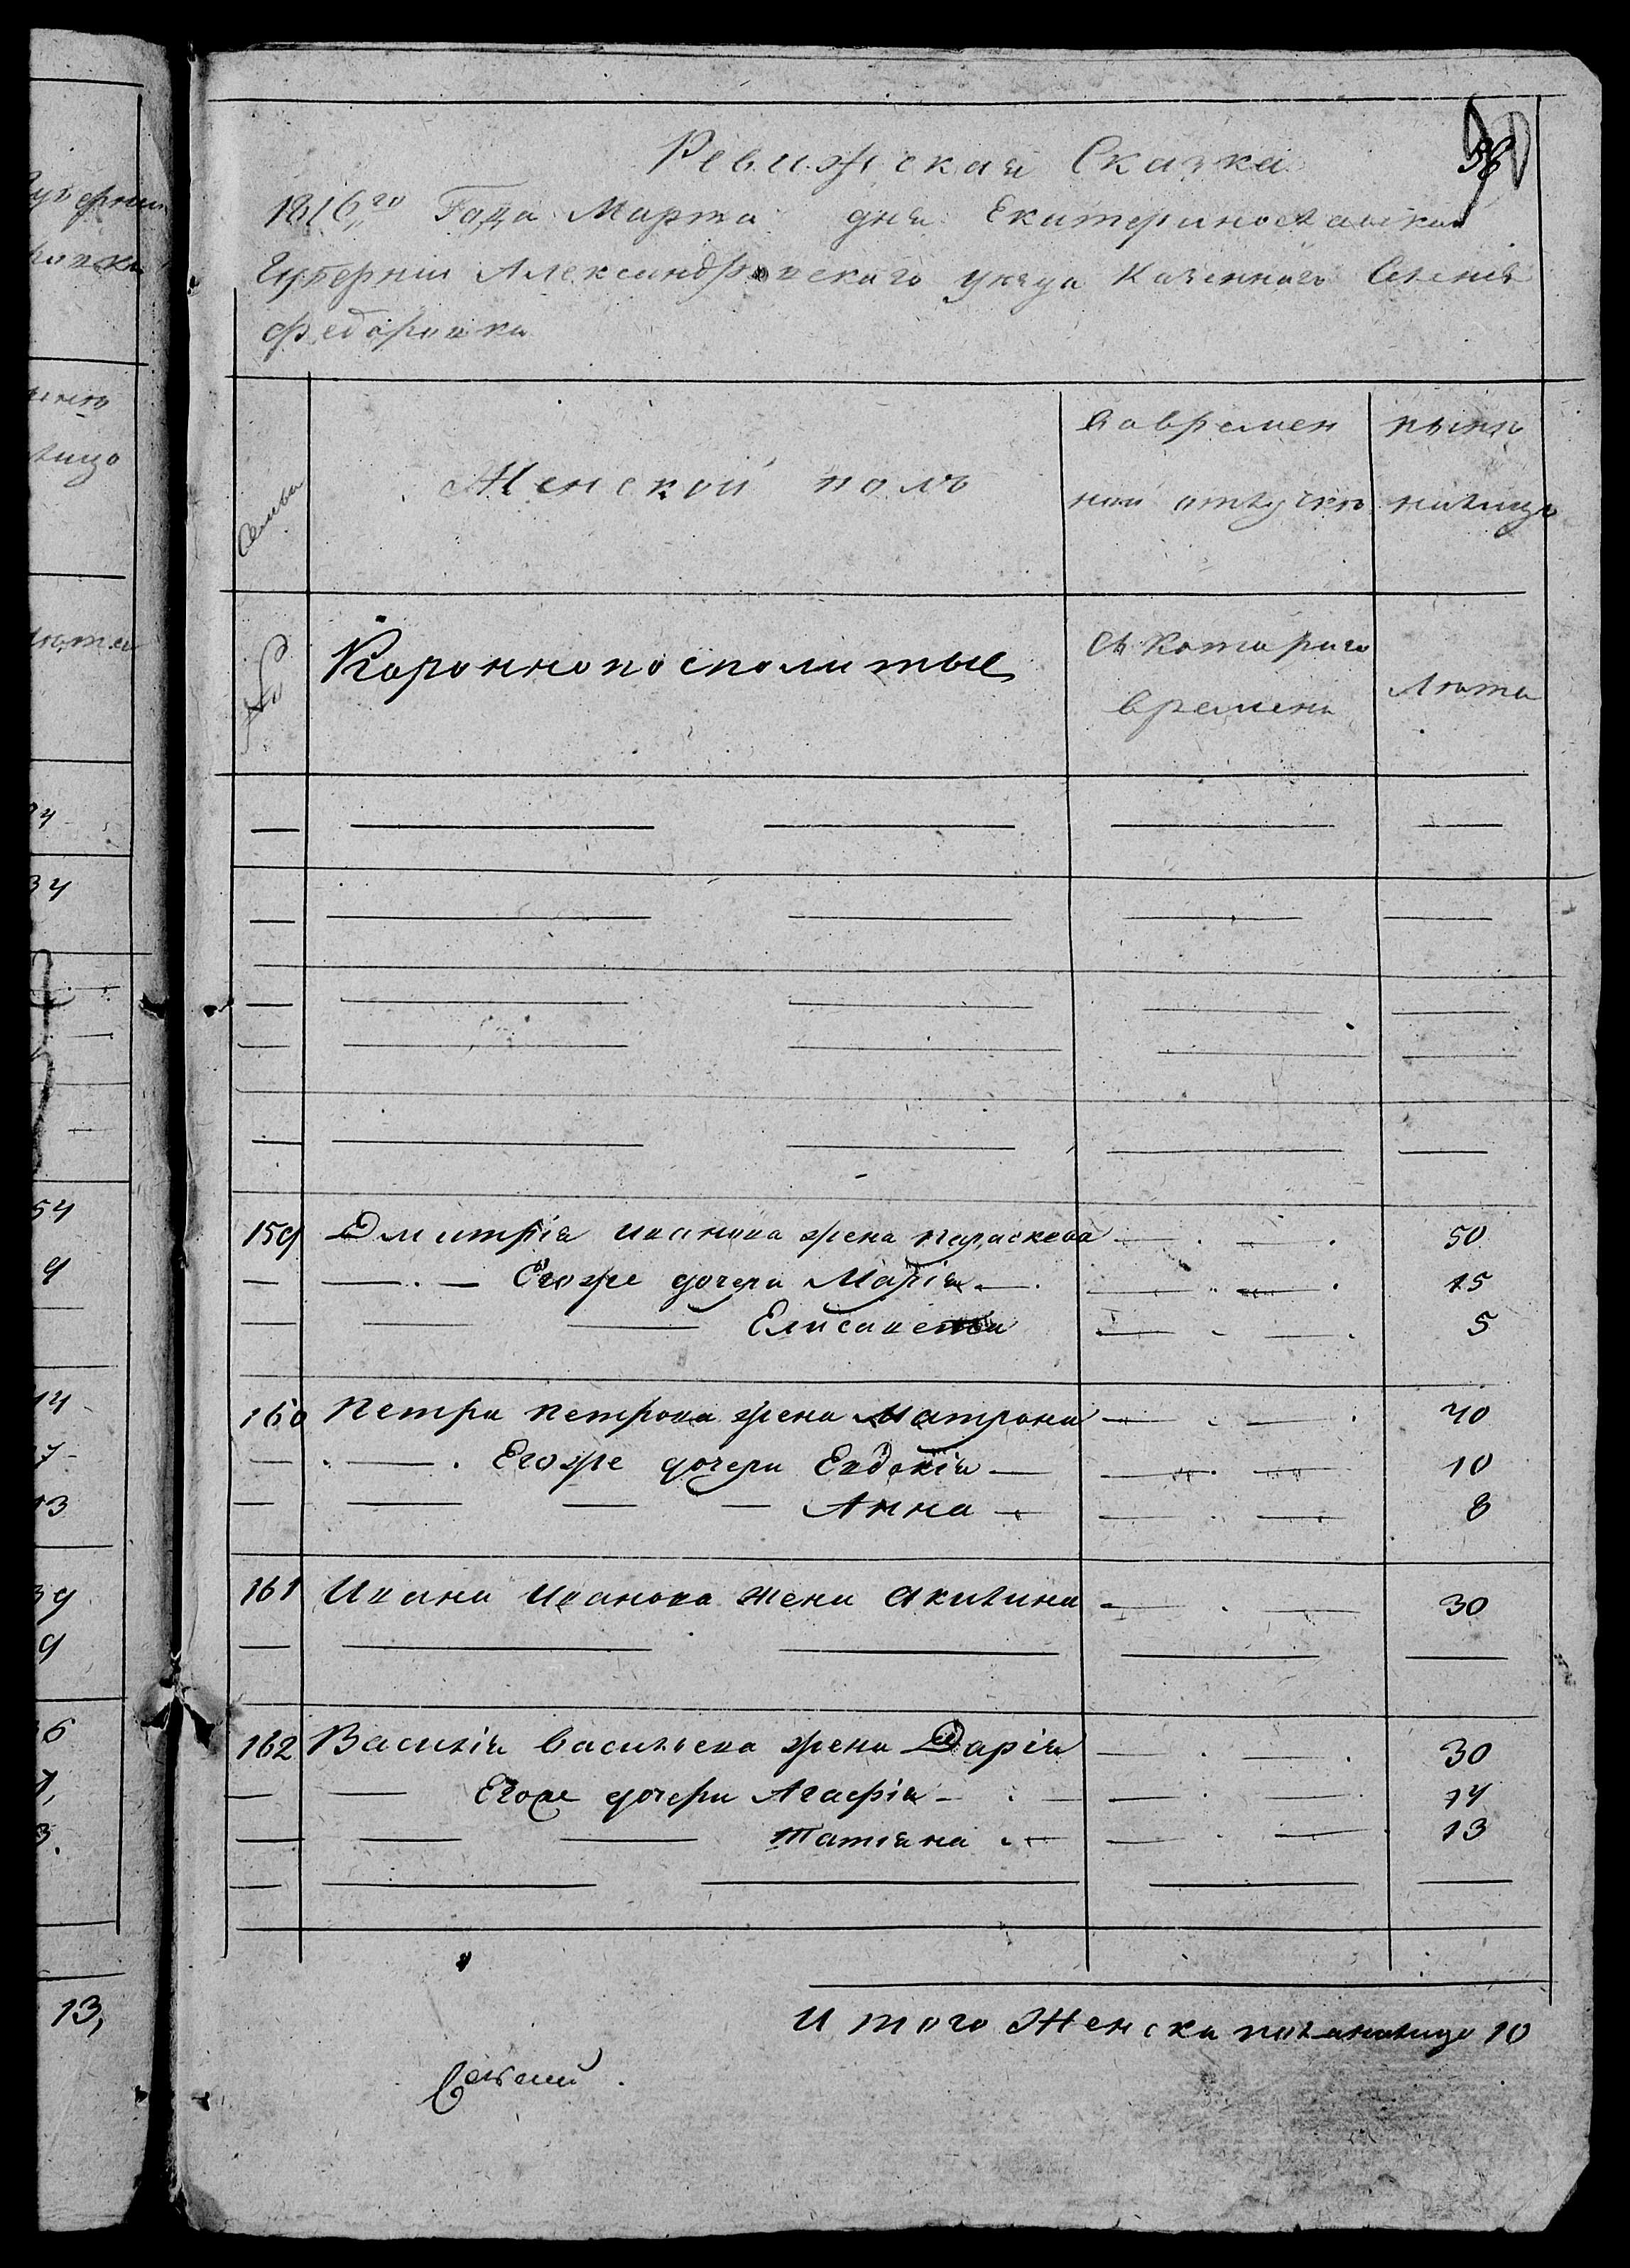 Ревижская Сказка
1816,го Года Марта дня Екатеринославской
Губернии Александровскаго уезда Казеннаго Селенія
Федоровки
Семьи
Женской полъ
вовремен
ной отлучке
ныне
налицо
№
Короннопосполитые
Съ котораго
времени
Лета
159 Дмитрія Иванова жена Параскева 50
Егожъ дочери Марія 15
Елисавета 5
160 Петра Петрова жена Матрона 40
Егоже дочери Евдокія 10
Анна 8
161 Ивана Иванова жена Акилина 30
162 Василія Васильева жена Дарія 30
Егоже дочери Агафія 14
Татіана 13
Итого Женска пола налицо 10
34
54
9
13
9
13,